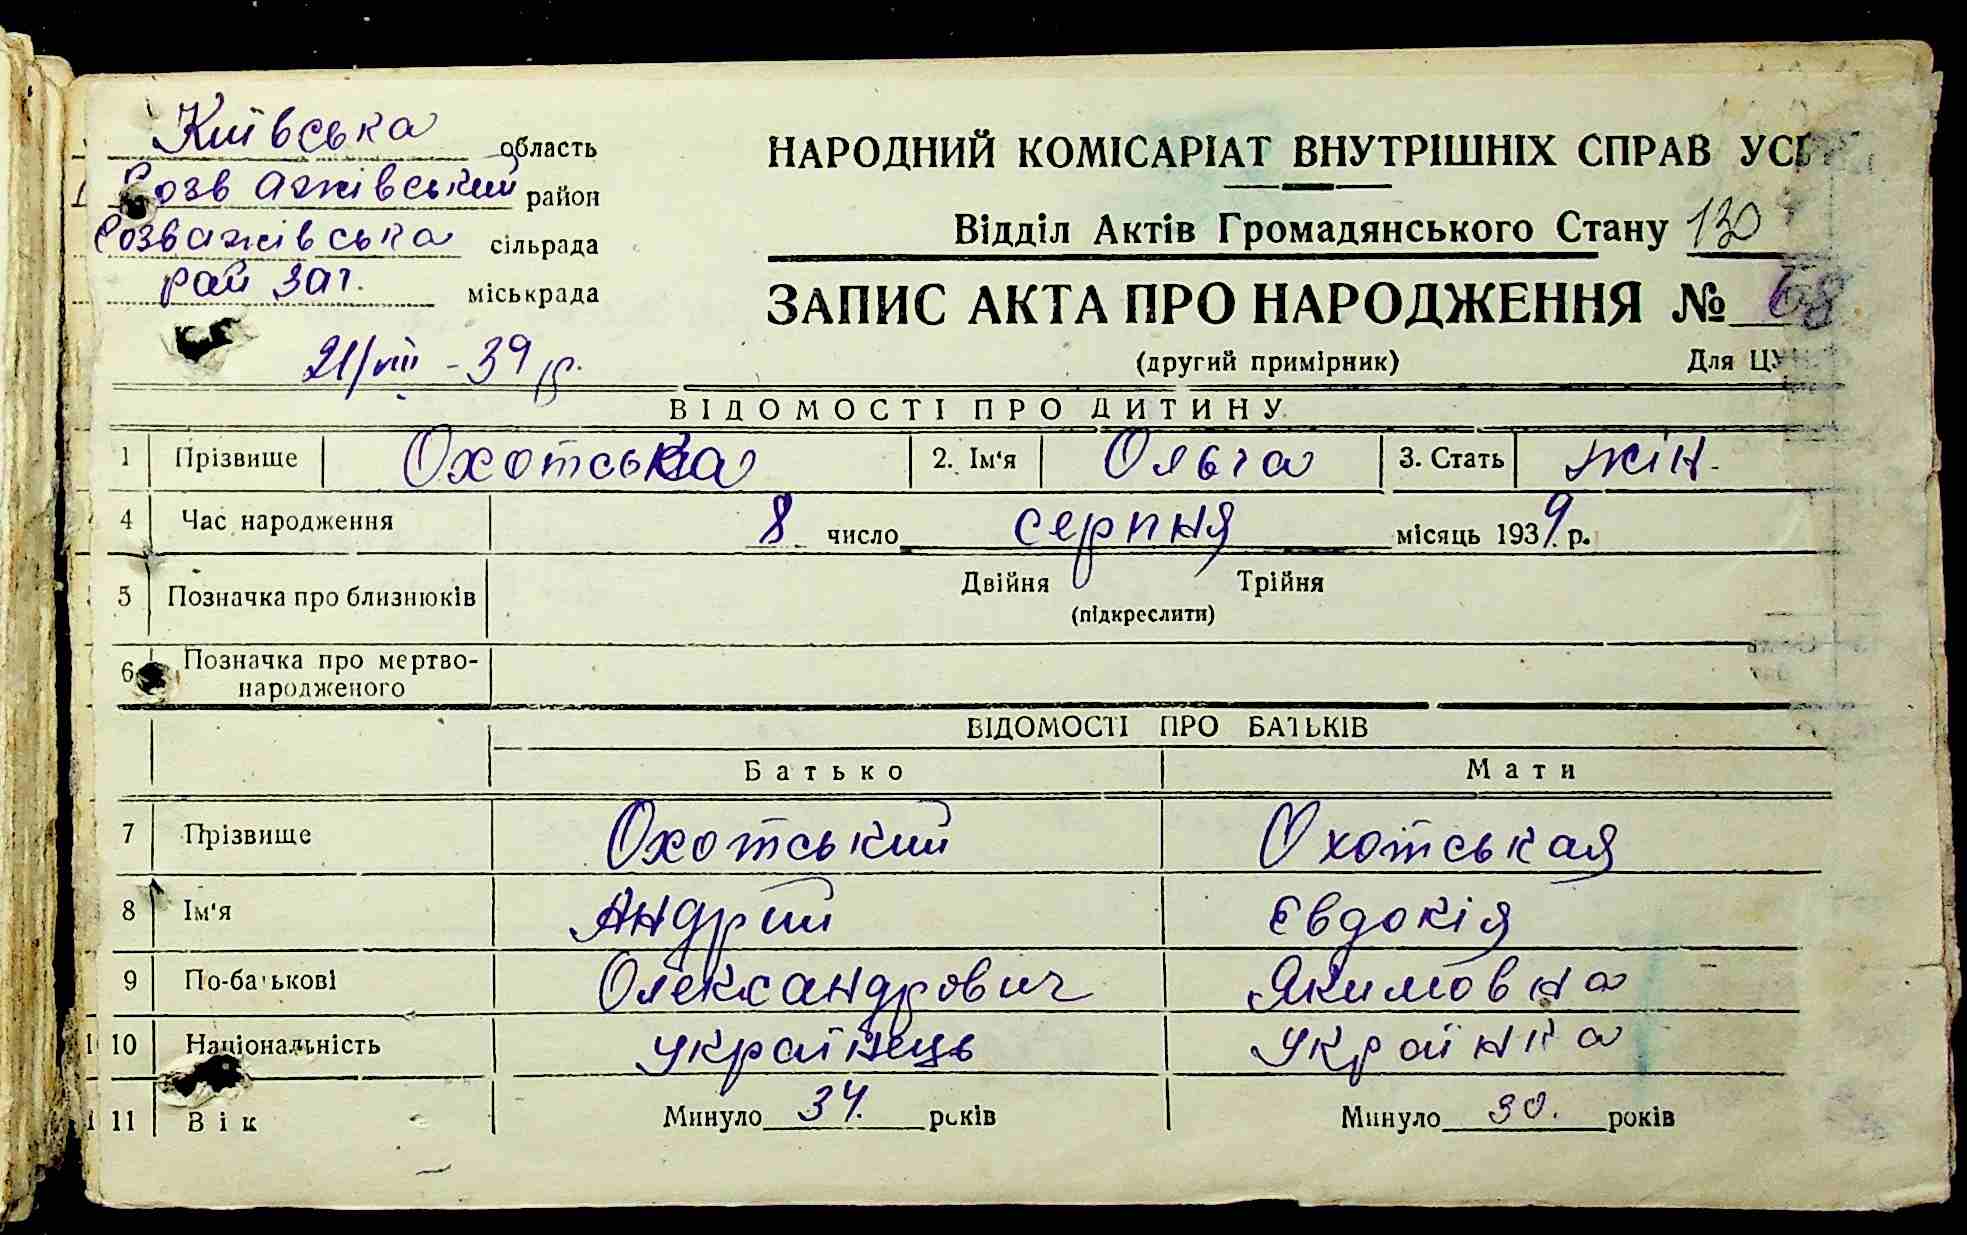 Київська область
Розважівський район
Розважівська сільрада
рай заг. міськрада
21/VIII - 39 р.
НАРОДНИЙ КОМІСАРІАТ ВНУТРІШНІХ СПРАВ УСР
Відділ Актів Громадянського Стану 130
ЗАПИС АКТА ПРО НАРОДЖЕННЯ № 68
(другий примірник) Для ЦУ
ВІДОМОСТІ ПРО ДИТИНУ
1 Прізвище Охотська 2. Ім'я Ольга 3. Стать жін.
4 Час народження 8 число серпня місяць 1939 р.
5 Позначка про близнюків Двійня Трійня
(підкреслити)
6 Позначка про мертво-
народженого
ВІДОМОСТІ ПРО БАТЬКІВ
Батько Мати
7 Прізвище Охотський Охотськая
8 Ім'я Андрій Євдокія
9 По-батькові Олександрович Якимовна
10 Національність українець Українка
11 Вік Минуло 34. років Минуло 30. років